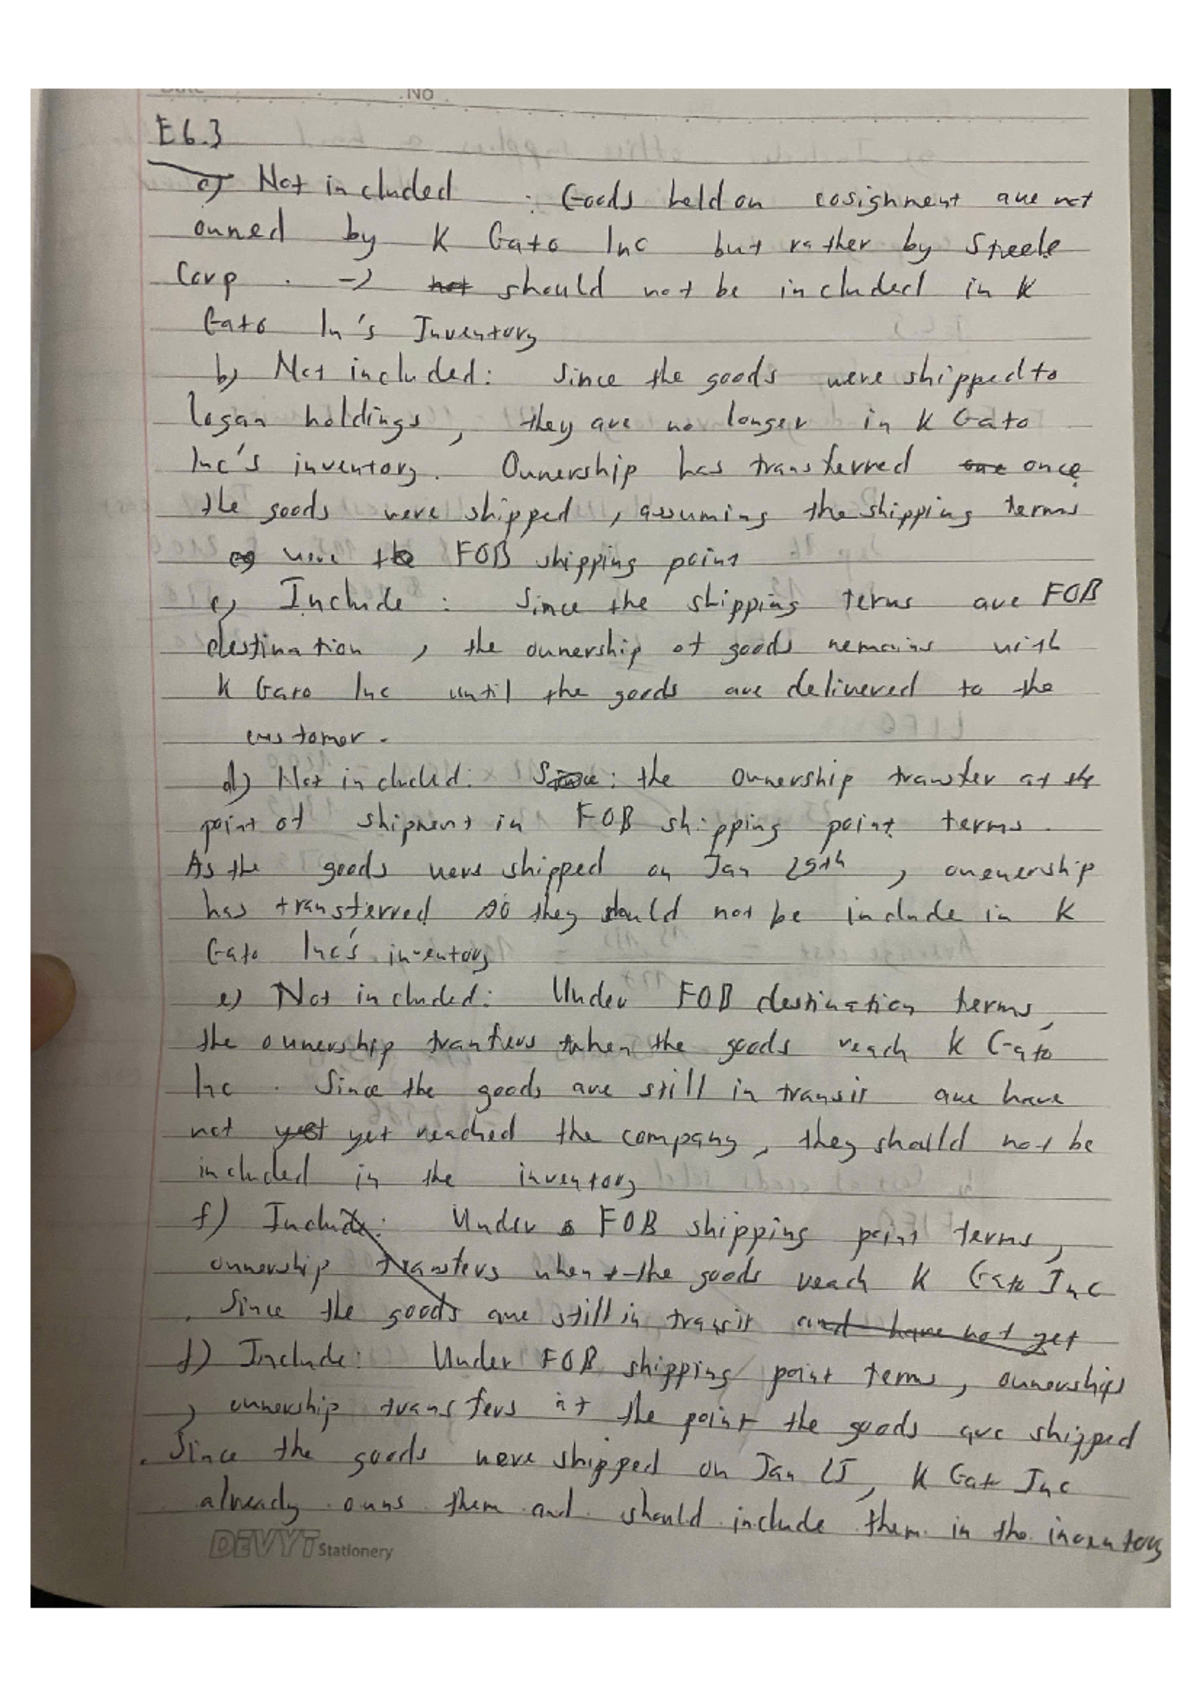 No
E6.3
a) Not included : Goods held on cosighment are not
owned by K Gato Inc but rather by Steele
Corp . -> not should not be included in K
Gato In's Inventory
b) Not included: Since the goods were shipped to
logan holdings, they are no longer in K Gato
Inc's inventory. Ownership has transferred once
the goods were shipped, assuming the shipping terms
were FOB shipping point
c) Include : Since the shipping terms are FOB
destination, the ownership of goods remains with
K Gato Inc until the goods are delivered to the
customer.
d) Not included: Since: the ownership transfer at the
point of shipment in FOB shipping point terms.
As the goods were shipped on Jan 25th, onenership
has transferred so they should not be include in K
Gato Inc's inventory
e) Not included: Under FOB destination terms,
the ownership tranfers when the goods reach K Gato
Inc . Since the goods are still in transit are have
not yet yet reached the company, they should not be
included in the inventory
f) Include: Under FOB shipping point terms,
ownership transfers when the goods reach K Gato Inc
. Since the goods are still in transit and have not yet
f) Include: Under FOB shipping point terms, ownership
, ownership transfers at the point the goods are shipped
. Since the goods were shipped on Jan 25, K Gato Inc
already owns them and should include them in the inventory
DEVYT Stationery